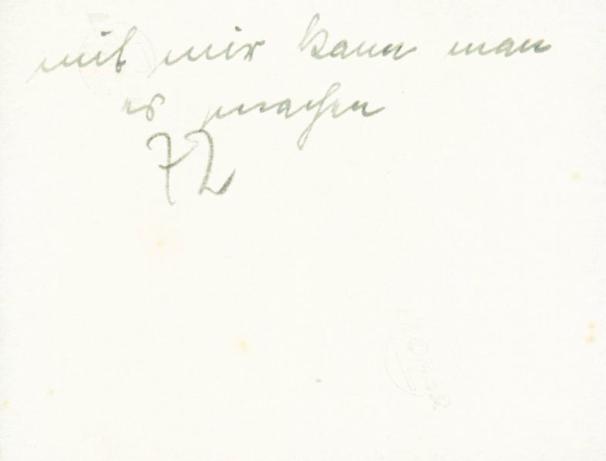 mit mir kann man
es machen
72